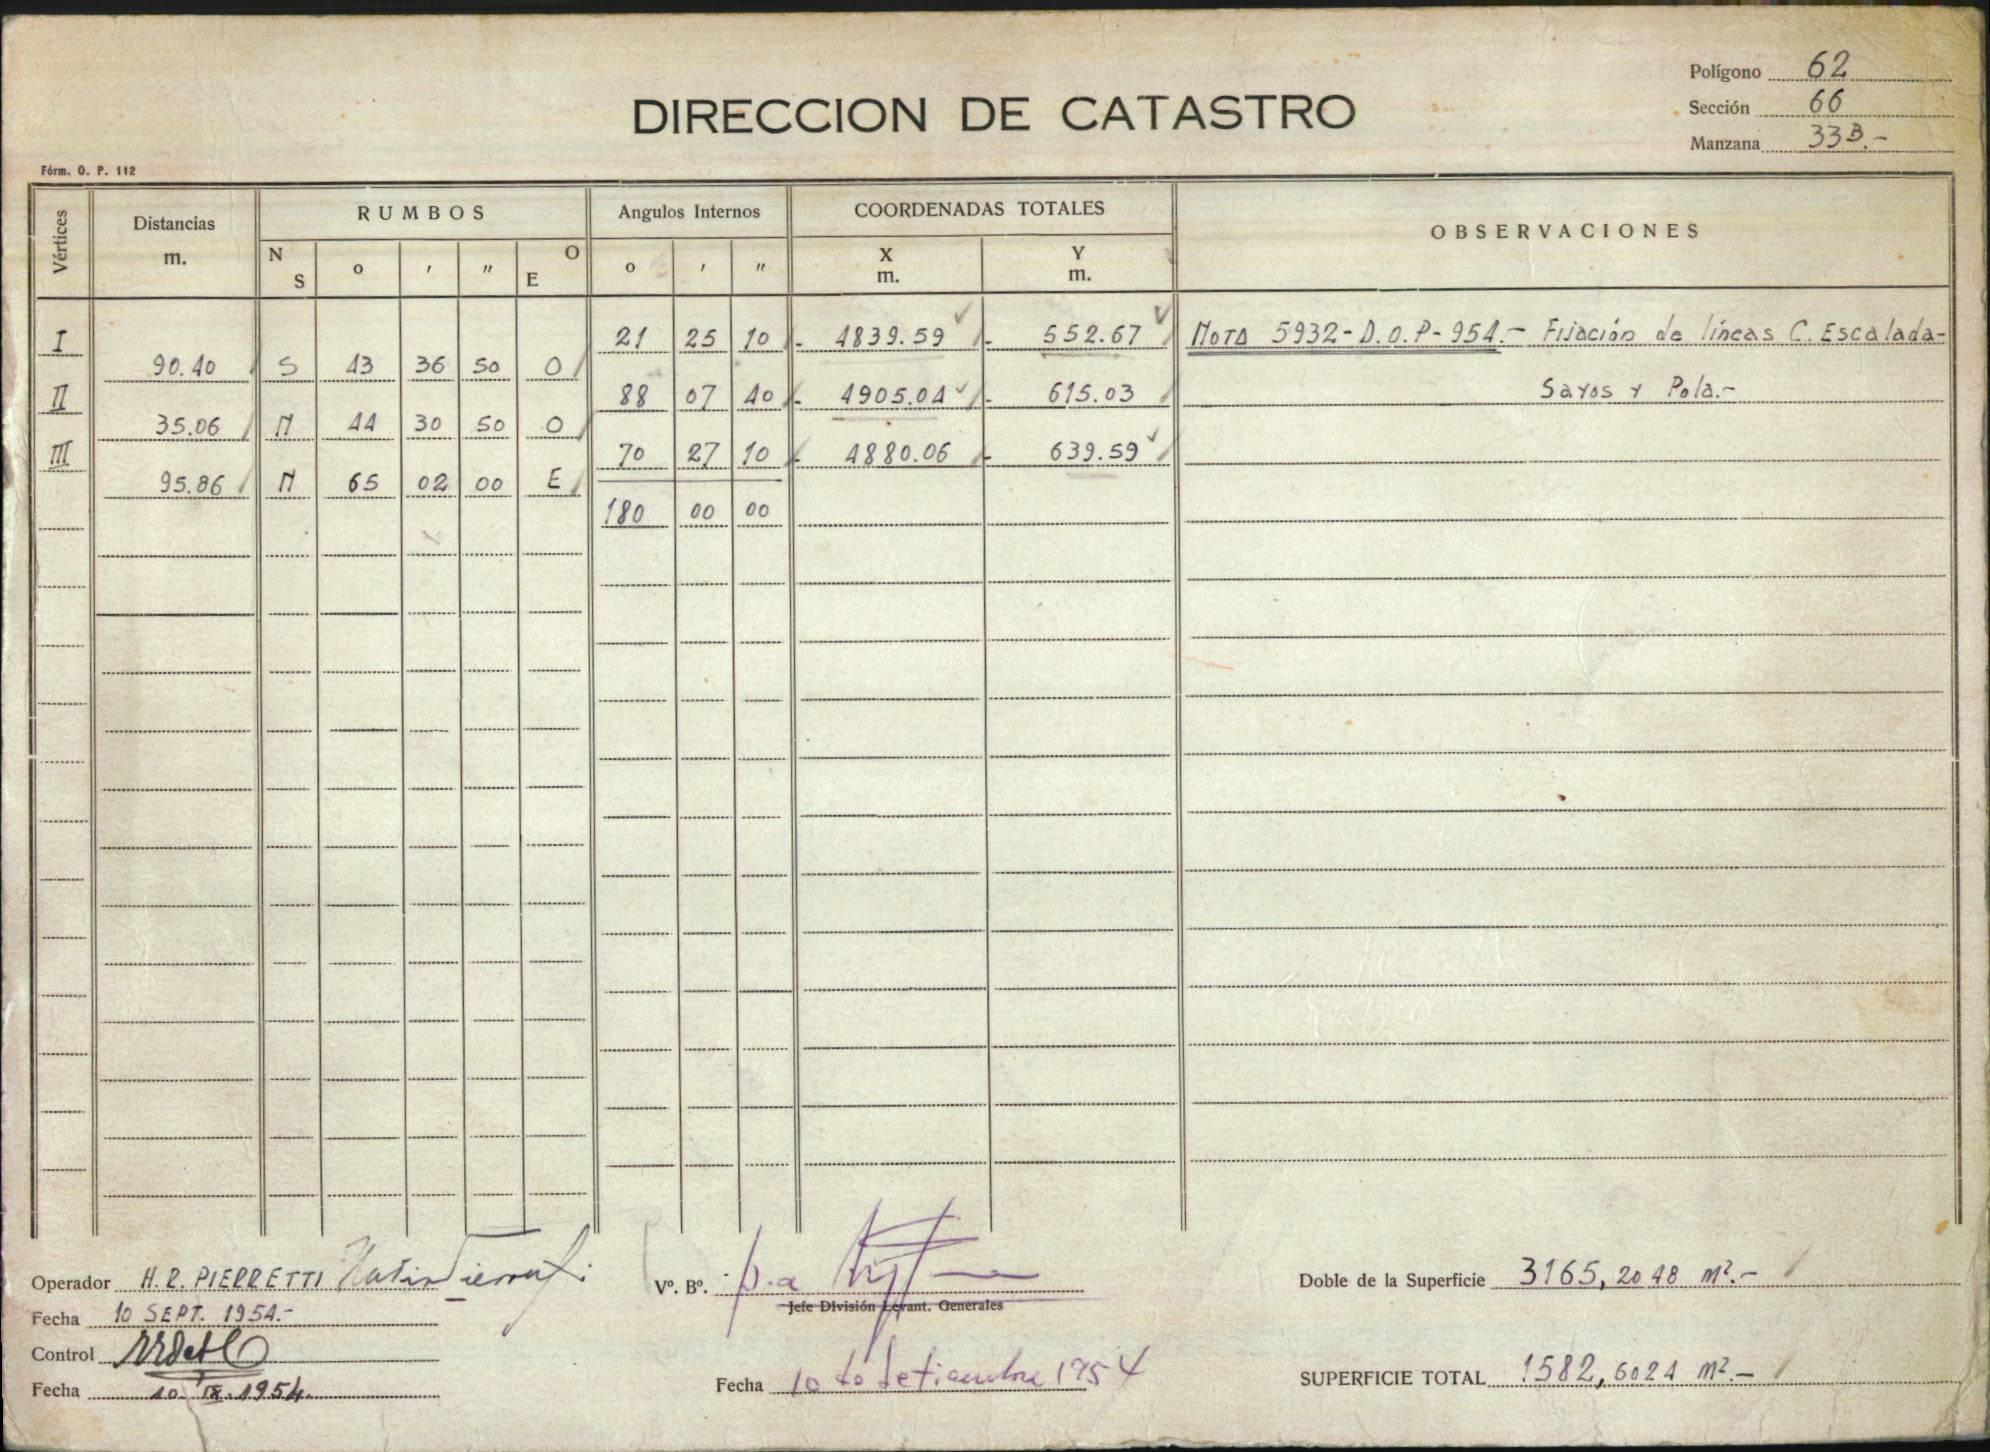 Polígono 62
DIRECCION DE CATASTRO
Sección 66
Manzana 33B.-
Fórm. O. P. 112
Vértices Distancias m. RUMBOS N S o ' " O E Angulos Internos o ' " COORDENADAS TOTALES X m. Y m. OBSERVACIONES
I 21 25 10 - 4839.59 - 552.67 NOTA 5932-D.O.P-954.- Fijación de líneas C. Escalada-
90.40 S 43 36 50 O
II 88 07 40 - 4905.04 - 615.03 Sayos y Pola.-
35.06 N 44 30 50 O
III 70 27 10 - 4880.06 - 639.59
95.86 N 65 02 00 E
180 00 00
Operador H. R. PIERRETTI
Vº. Bº. p.a
Jefe División Levant. Generales
Doble de la Superficie 3165,2048 m².-
Fecha 10 SEPT. 1954.-
Control
Fecha 10. IX. 1954.
Fecha 10 de Setiembre 1954
SUPERFICIE TOTAL 1582,6024 m².-